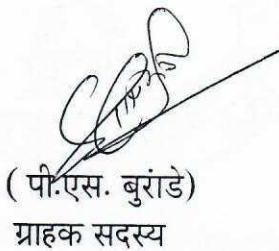 ( पी.एस. बुरांडे)
ग्राहक सदस्य